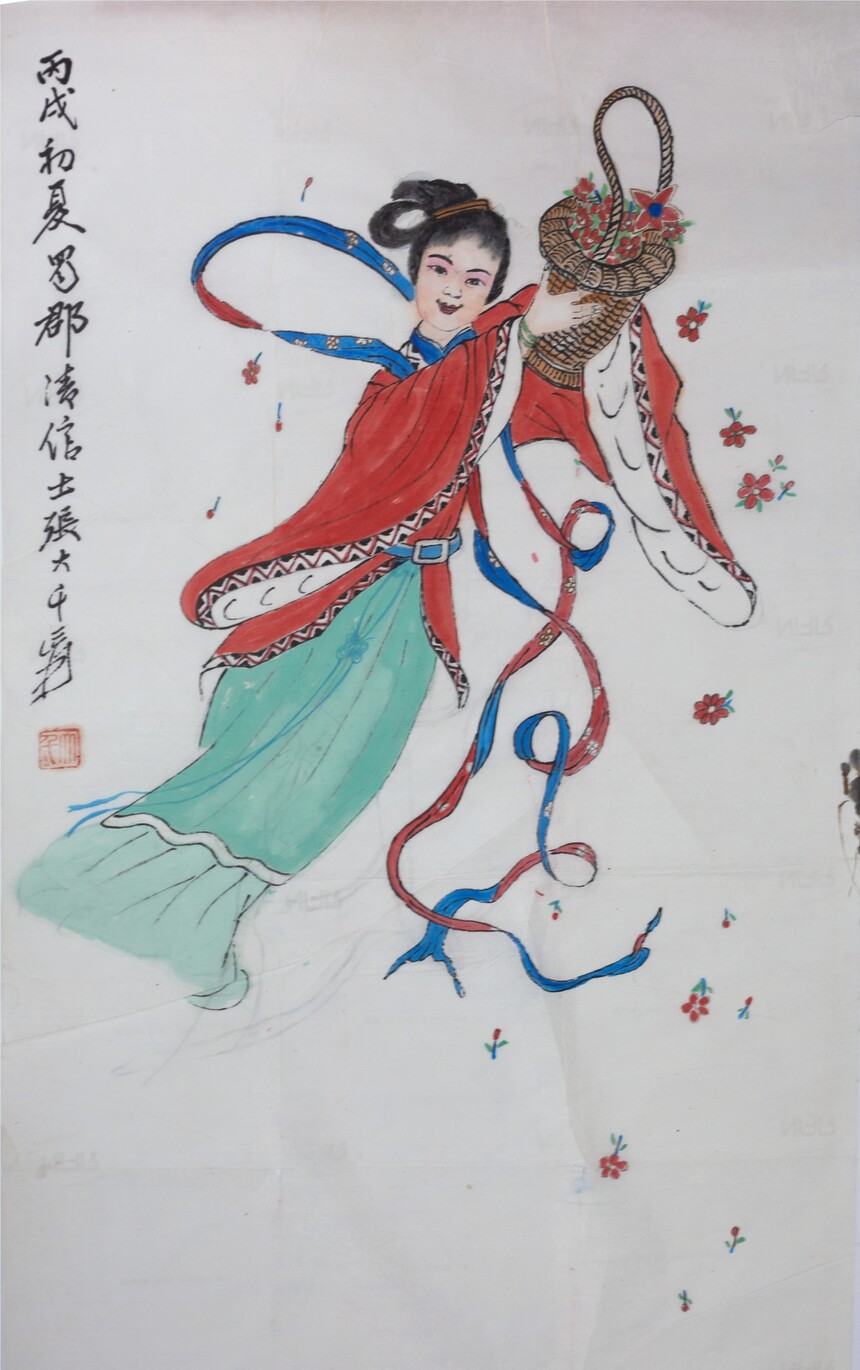 丙戌初夏蜀郡清信士張大千爰